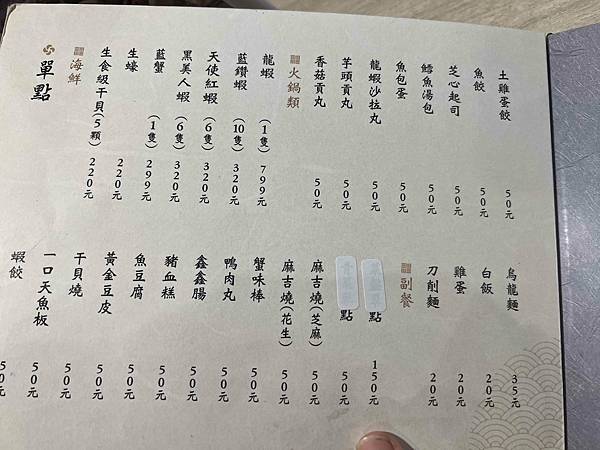 單點
海鮮
生食級干貝(5顆) 220元
生蠔 220元
藍蟹 (1隻) 299元
黑美人蝦 (6隻) 320元
天使紅蝦 (6隻) 320元
藍鑽蝦 (10隻) 320元
龍蝦 (1隻) 799元
火鍋類
香菇貢丸 50元
芋頭貢丸 50元
龍蝦沙拉丸 50元
魚包蛋 50元
鱈魚湯包 50元
芝心起司 50元
魚餃 50元
土雞蛋餃 50元
蝦餃 50元
一口天魚板 50元
干貝燒 50元
黃金豆皮 50元
魚豆腐 50元
豬血糕 50元
鑫鑫腸 50元
鴨肉丸 50元
蟹味棒 50元
麻吉燒(花生) 50元
麻吉燒(芝麻) 50元
點 50元
點 150元
副餐
刀削麵 20元
雞蛋 20元
白飯 20元
烏龍麵 35元